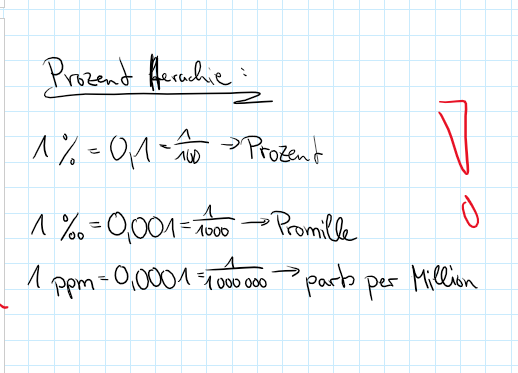 Prozent Herachie:
1 % = 0,1 = 1/100 → Prozent
1 ‰ = 0,001 = 1/1000 → Promille
1 ppm = 0,0001 = 1/1000 000 → parts per Million
!